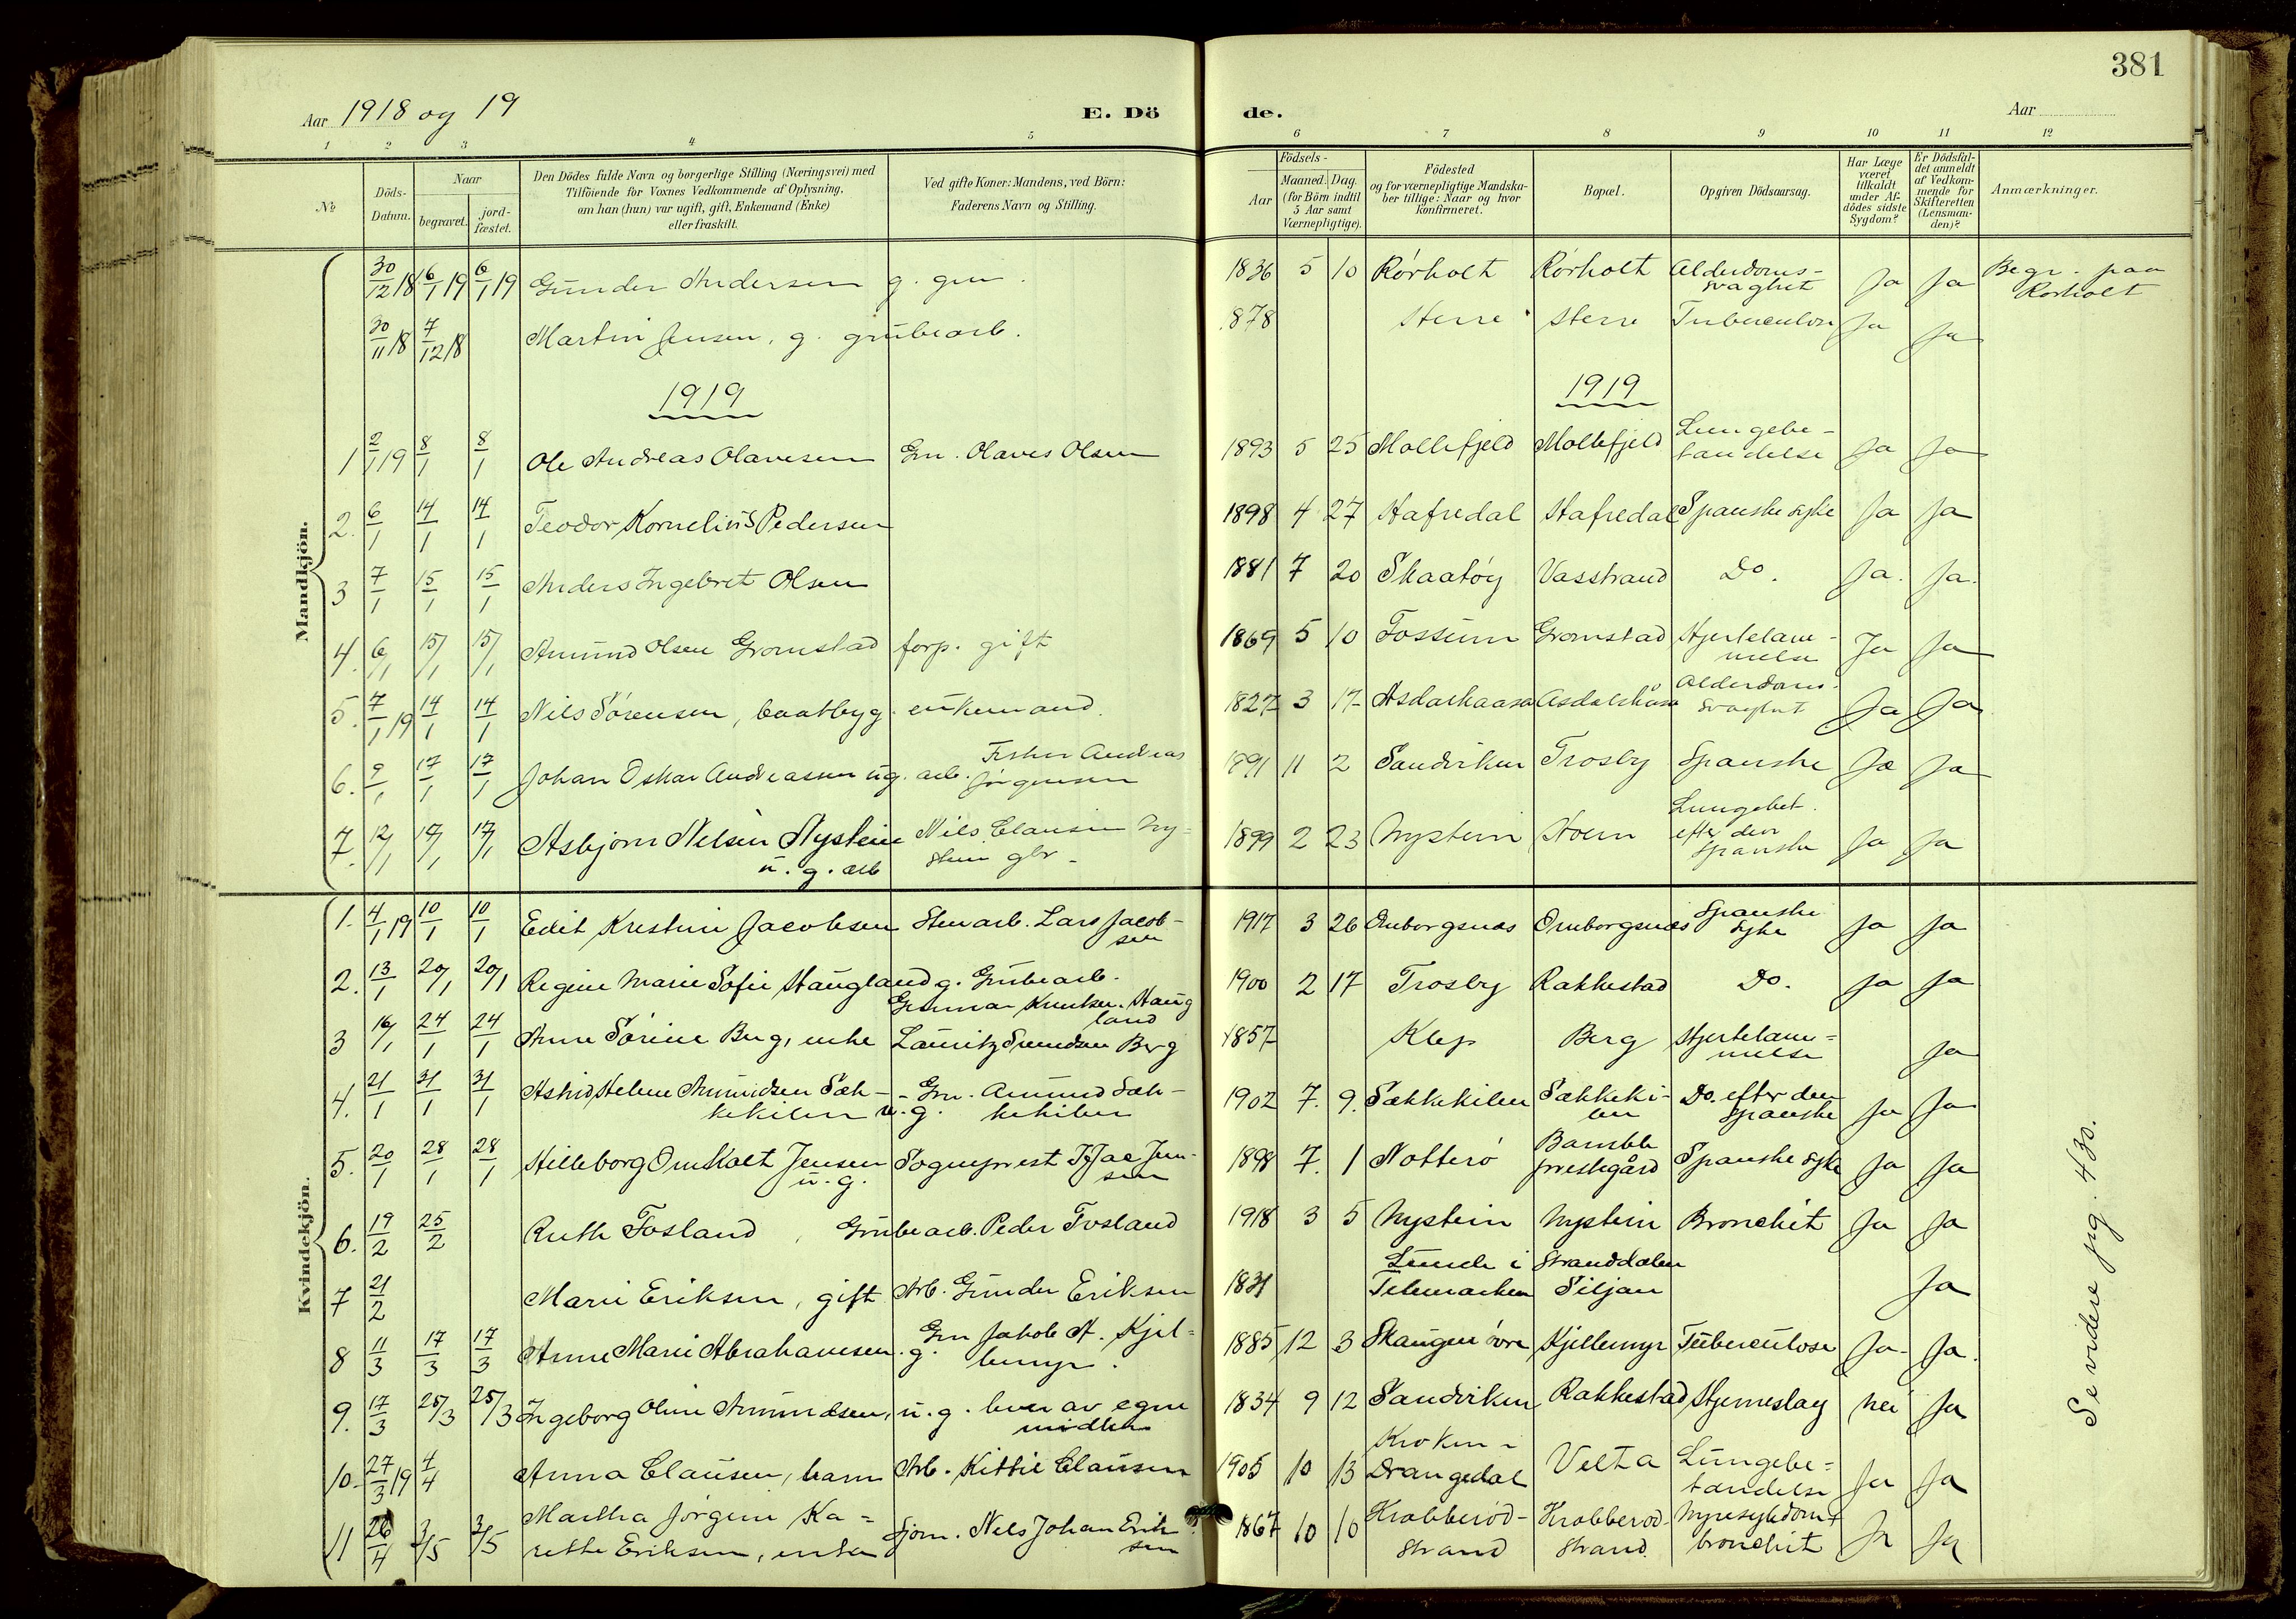 381
Aar 1918 og 19
E. Dö
de.
Aar
1 2 3 4 5 6 7 8 9 10 11 12
No
Döds-Datum.
Naar
begravet.
jord-fæstet.
Den Dödes fulde Navn og borgerlige Stilling (Næringsvei) med
Tilföiende for Voxnes Vedkommende af Oplysning,
om han (hun) var ugift, gift, Enkemand (Enke)
eller fraskilt.
Ved gifte Koner: Mandens, ved Börn:
Faderens Navn og Stilling.
Födsels-
Aar
Maaned. Dag.
(for Börn indtil
5 Aar samt
Værnepligtige).
Födested
og for værnepligtige Mandska-
ber tillige: Naar og hvor
konfirmeret.
Bopæl.
Opgiven Dödsaarsag.
Har Læge
været
tilkaldt
under Af-
dödes sidste
Sygdom?
Er Dödsfal-
det anmeldt
af Vedkom-
mende for
Skifteretten
(Lensman-
den)?
Anmærkninger.
Mandkjön.
30/12 18 6/1 19 6/1 19 Gunder Andersen g. grn. 1836 5 10 Rörholt Rörholt Alderdoms-
svaghet Ja Ja Begr. paa
Rörholt
30/11 18 7/12 18 Martin Jensen, g. grubearb. 878 Herre Herre Tuberculose Ja Ja
1919 1919
1 2/1 19 8/1 8/1 Ole Andreas Olavesen Grn. Olaves Olsen 1893 5 25 Mollefjeld Mollefjeld Lungebe-
tændelse Ja Ja
2. 6/1 14/1 14/1 Teodor Kornelius Pedersen 1898 4 27 Hafredal Hafredal Spanske syke Ja Ja
3 7/1 15/1 15/1 Anders Ingebret Olsen 1881 7 20 Skaatöy Vasstrand Do. Ja. Ja.
4. 6/1 15/1 15/1 Amund Olsen Gromstad forp. gift 1869 5 10 Fossum Gromstad Hjertelam-
melse Ja Ja
5. 7/1 19 14/1 14/1 Nils Sörensen, baatbyg. enkemand. 1827 3 17 Asdalskaasa Asdalskåsa Alderdoms-
svaghet Ja Ja
6. 9/1 17/1 17/1 Johan Oskar Andreassen ug. arb. Fisker Andreas
Jörgensen 1891 11 2 Sandviken Trosby Spanske Ja Ja
7. 12/1 17/1 17/1 Asbjörn Nelsen Nystein
u. g. arb Nils Clausen Ny-
stein gbr. 1899 2 23 Nystein Hoen Lungebet.
efter den
Spanske Ja Ja
Kvindekjön.
1. 4/1 19 10/1 10/1 Edit Kristine Jacobsen Stenarb. Lars Jacob-
sen 1917 3 26 Omborgsnæs Omborgsnæs Spanske
Syke Ja Ja
2. 13/1 20/1 20/1 Regine Marie Sofie Haugland g. Grubearb.
Gunnar Knutsen Haug
land 1900 2 17 Trosby Rakkestad Do. Ja Ja
3 16/1 24/1 24/1 Anne Sörine Berg, enke Lauritz Svendsen Berg 1857 Klep Berg Hjertelam-
melse Ja
4. 21/1 31/1 31/1 Astrid Helene Amundsen Sæk-
kekilen u. g. Grn. Amund Sæk-
kekilen 1902 7. 9. Sækkekilen Sækkeki-
len Do. efter den
Spanske Ja Ja
5. 20/1 28/1 28/1 Hilleborg Omholt Jensen
u. g. Sogneprest Jen-
sen 1898 7. 1 Notterö Bamble
prestegård Spanske Syke Ja Ja
6. 19/2 25/2 Ruth Fosland, Grubearb. Peder Fosland 1918 3 5 Nystein Nystein Bronchit Ja Ja
7 21/2 Marie Eriksen, gift Arb. Gunder Eriksen 1831 Lunde i
Telemarken Stranddalen
Siljan Ja
8 11/3 17/3 17/3 Anne Marie Abrahamsen g. Grn Jakob A. Kjel-
lemyr. 1885 12 3 Skaugen övre Kjellemyr Tuberculose Ja Ja.
9. 17/3 25/3 25/3 Ingeborg Oline Amundsen, u. g. lever av egne
midler 1834 9 12 Sandviken Rakkestad Hjerneslag Nei Ja
10 27/3 19 4/4 Anna Clausen, barn Arb. Kittil Clausen 1905 10 13 Kroken-
Drangedal Velta Lungebe-
tændelse Ja Ja
11 26/4 3/5 3/5 Martha Jörgine Ka-
rethe Eriksen, enke Sjöm. Nels Johan Erik-
sen 1867 10 10 Krabberöd-
Strand Krabberöd-
Strand. Nyresykdom +
bronchit Ja Ja
Se videre pg. 430.